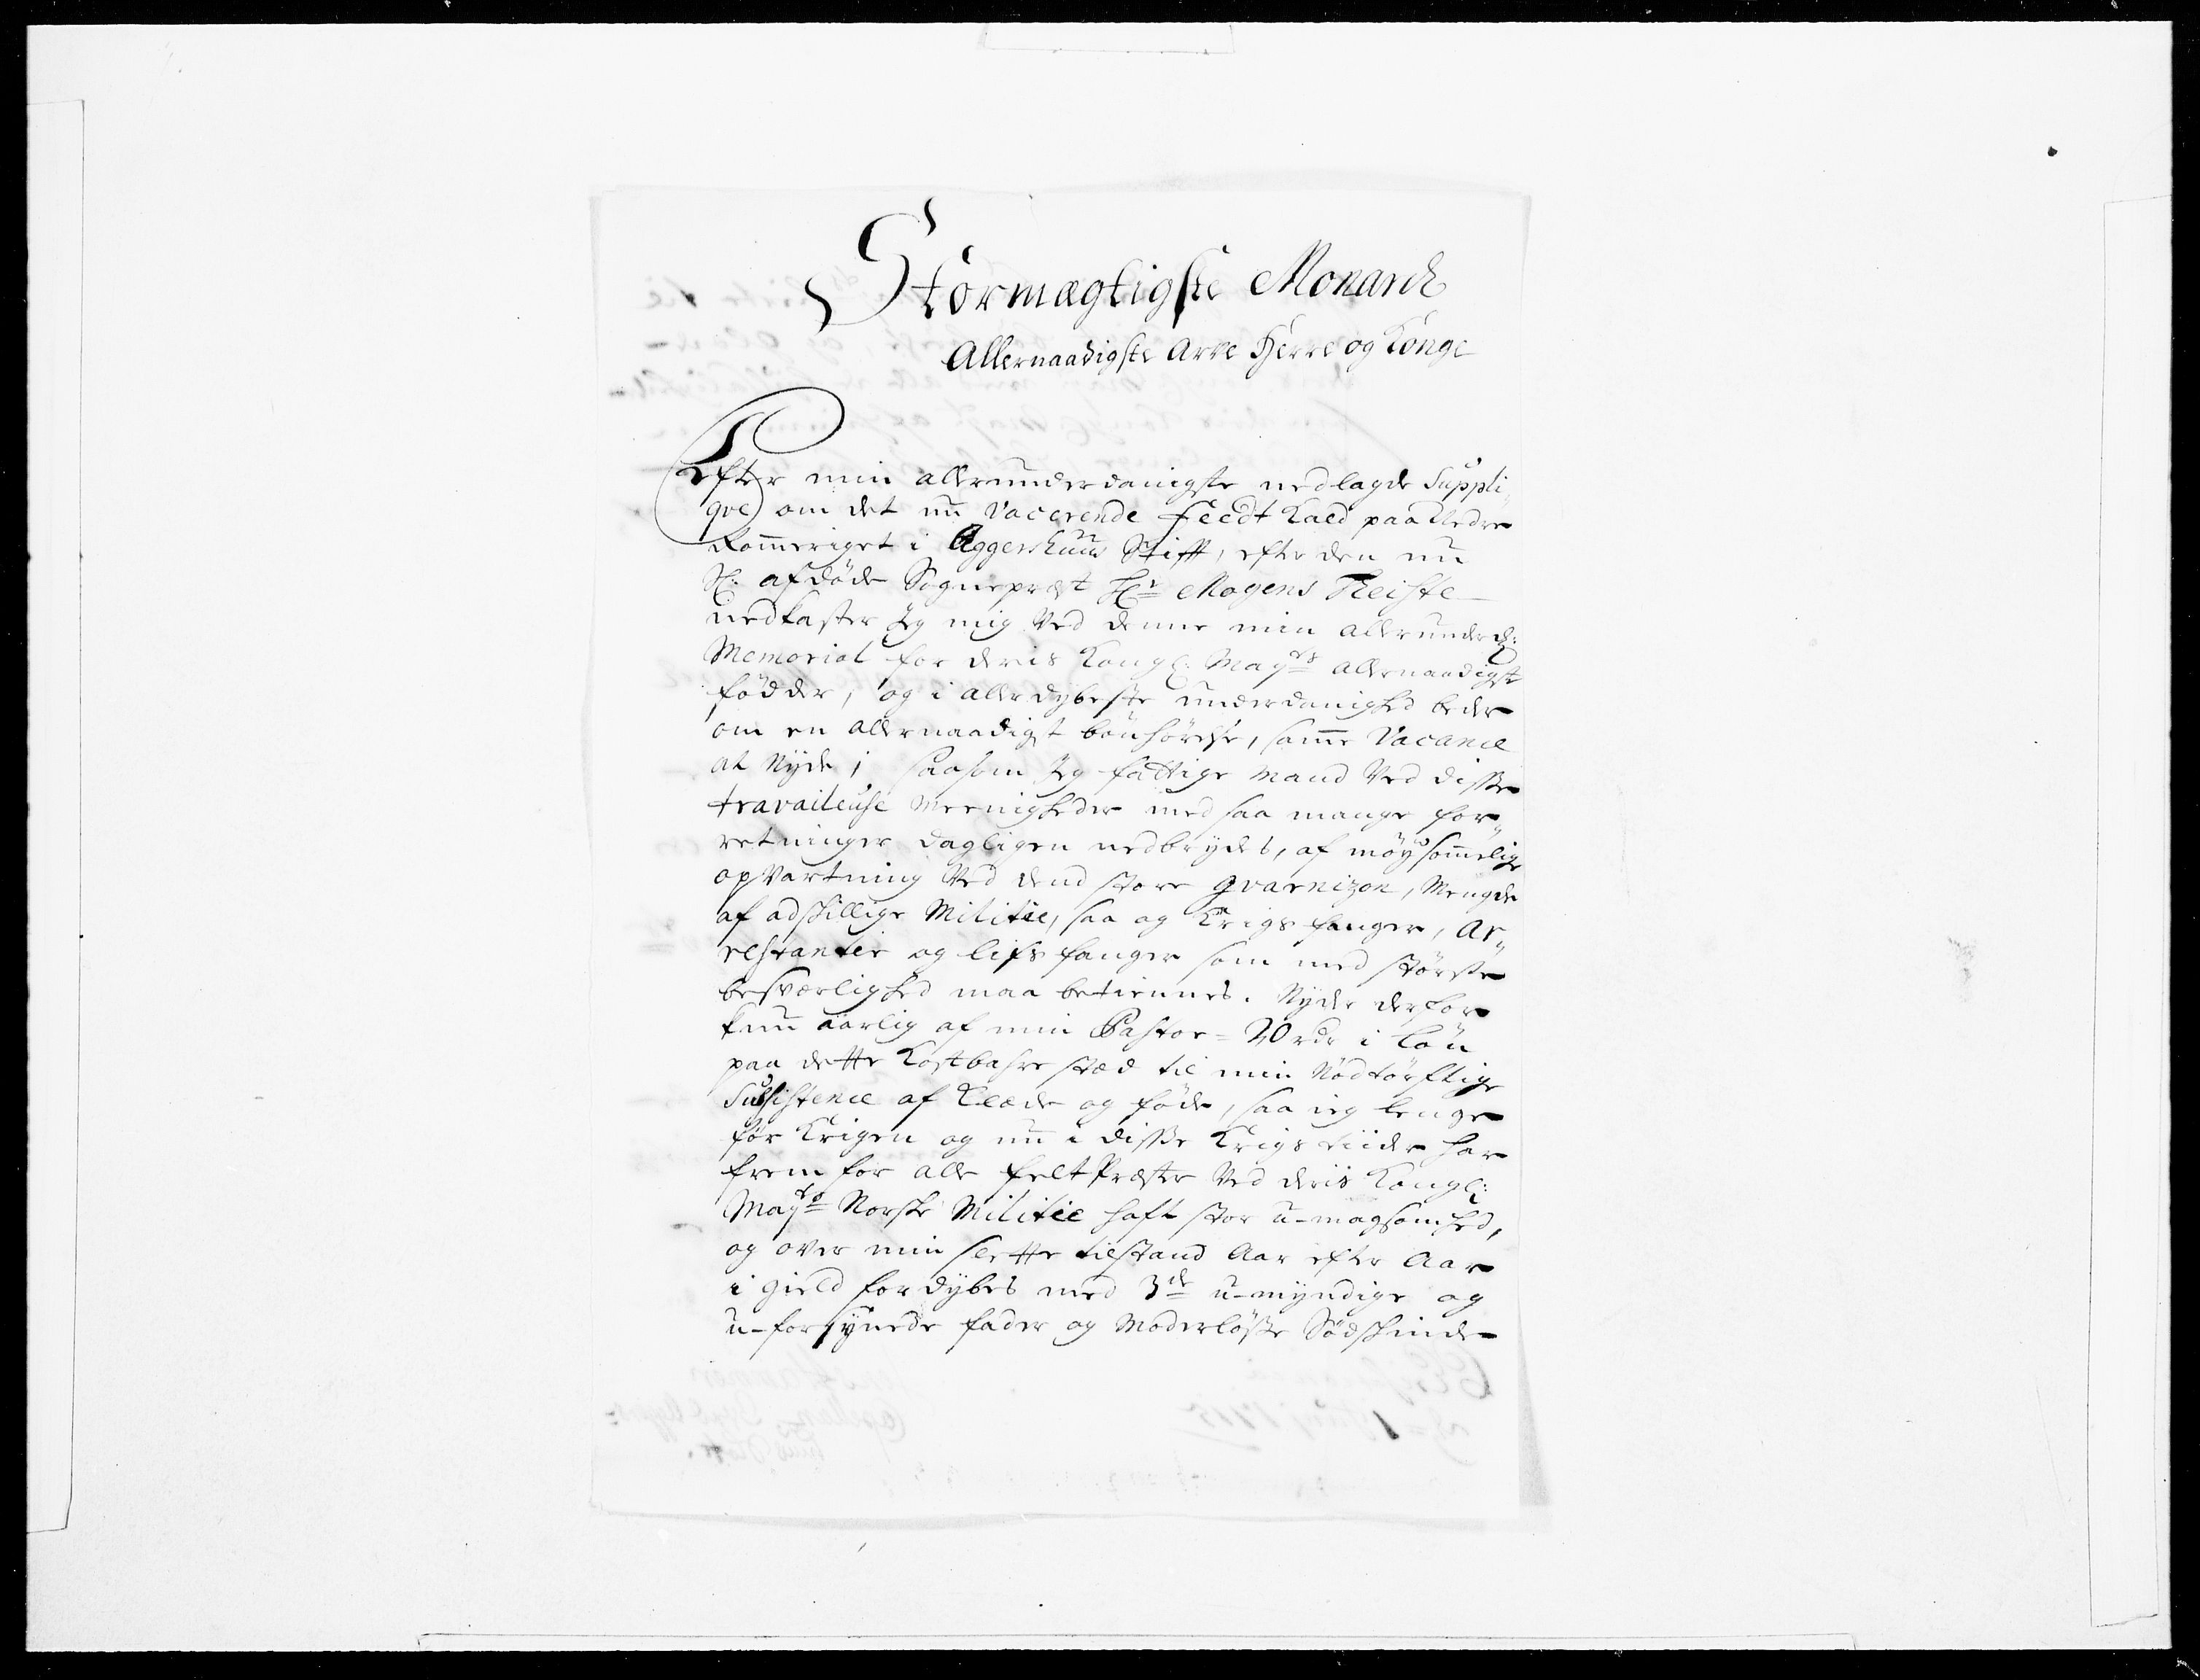 Stormægtigste Monarch
Allernaadigste Arve Herre og Konge
Efter min allerunderdanigste nedlagde Suppli,
qve om det nu vacerende Feedt Kald paa Nedre
Rommeriget i Aggershuus Stift, efter den nu
Sl: afdøde Sognepræst Hr Mogens Theiste
nedkaster Jeg mig ved denne min allerunderd:
Memorial for deris Kongl: Mayts allernaadigst
fødder, og i allerdybeste underdanighed beder
om en allernaadigst bønhørelse, samme Vacance
at Nyde, saasom Jeg fattige Mand ved disse
travaileuse Meenigheder med saa mange for,,
retninger dagligen nedbrydes, af møysommelige
opvartning ved dend store Gvarnizon, Mengde
af adskillige Militie, saa og Krigs fanger, Ar,,
restanter og lifs fanger som med største
besværlighed maa betiennes. Nyder derfor
kun aarlig af min Pastor = 20 rdr i løn
paa dette Kostbahre stæd til min Nødtørftige
Subsistence af Klæde og føde, saa ieg lenge
før Krigen og nu i disse Krigs tiider har
frem for alle feltPræster ved deris Kongl:
Mayts Norske Militie haft stor u-magsomhed,
og over min slette tilstand Aar efter Aar
i gield fordybes med 3de u-myndige og
u-forsynede fader og Moderløsse Sødskinde